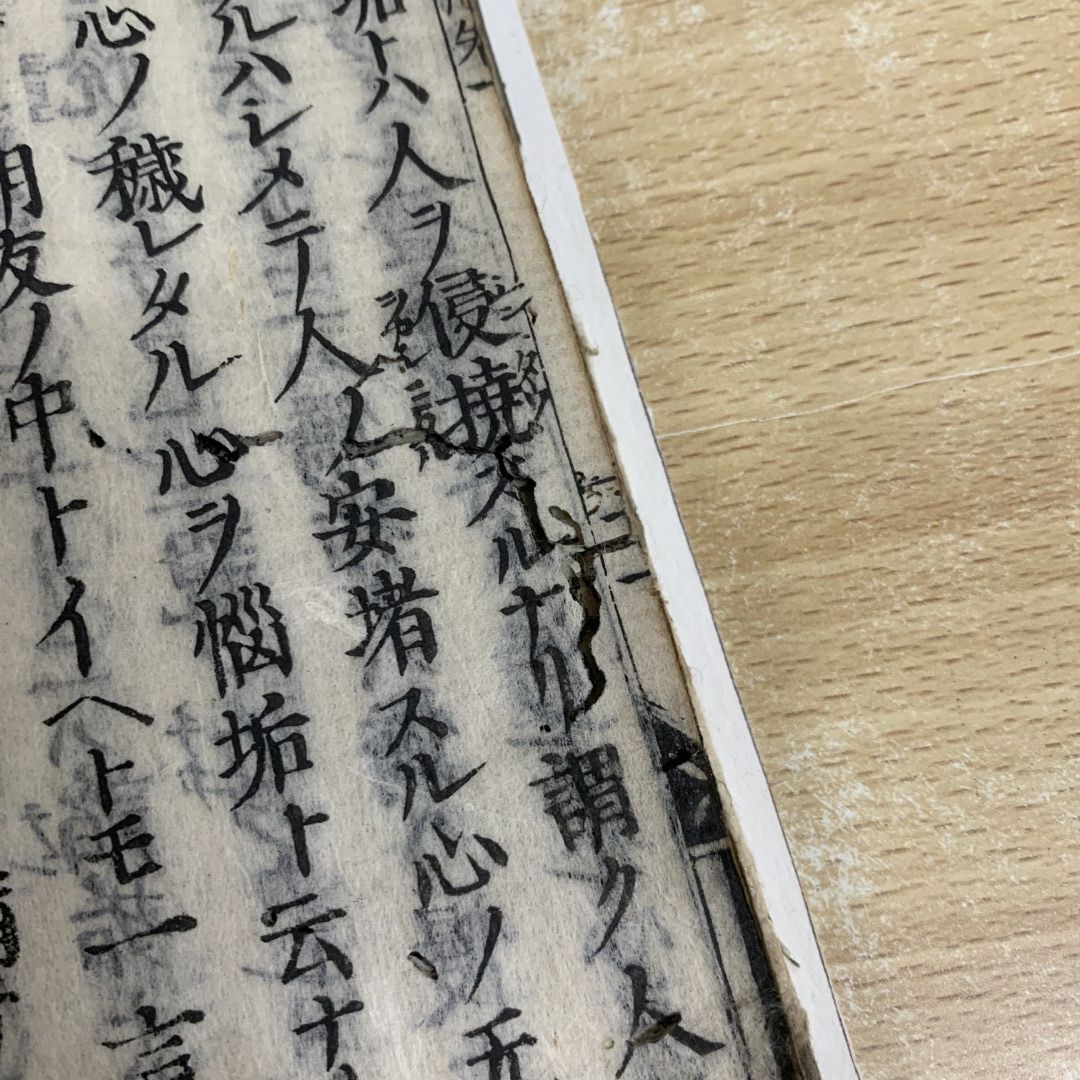 垢トハ人ヲ侵撓スルナリ謂ク人
ルハシメテノ人ノ安堵スル心ノ
心ノ穢レタル心ヲ惱垢ト云ナ
朋友ノ中トイヘトモ一言